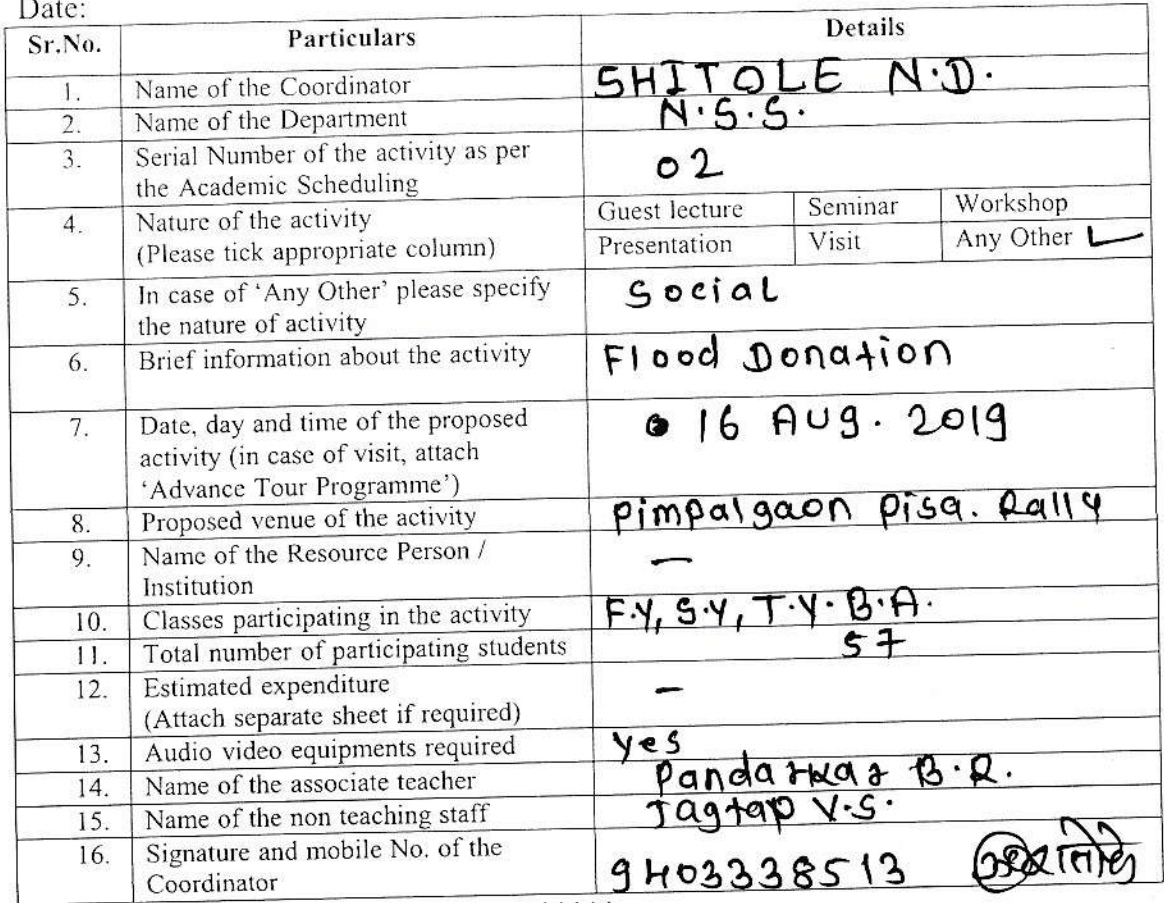 Date:
Sr.No. Particulars Details
1. Name of the Coordinator SHITOLE N.D.
2. Name of the Department N.S.S.
3. Serial Number of the activity as per
the Academic Scheduling 02
4. Nature of the activity Guest lecture Seminar Workshop
(Please tick appropriate column) Presentation Visit Any Other ✓
5. In case of 'Any Other' please specify Social
the nature of activity
6. Brief information about the activity Flood Donation
7. Date, day and time of the proposed 16 AUg. 2019
activity (in case of visit, attach
'Advance Tour Programme')
8. Proposed venue of the activity pimpalgaon pisa. Rally
9. Name of the Resource Person / —
Institution
10. Classes participating in the activity F.Y, S.Y, T.Y. B.A.
11. Total number of participating students 57
12. Estimated expenditure —
(Attach separate sheet if required)
13. Audio video equipments required Yes
14. Name of the associate teacher Pandarkar B.R.
15. Name of the non teaching staff Jagtap V.S.
16. Signature and mobile No. of the
Coordinator 9403338513